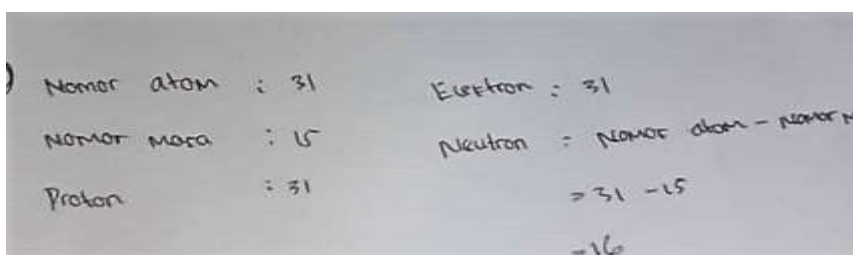 ) Nomor atom : 31
Nomor masa : 15
Proton : 31
Elektron : 31
Neutron = Nomor atom - Nomor M
= 31 - 15
= 16